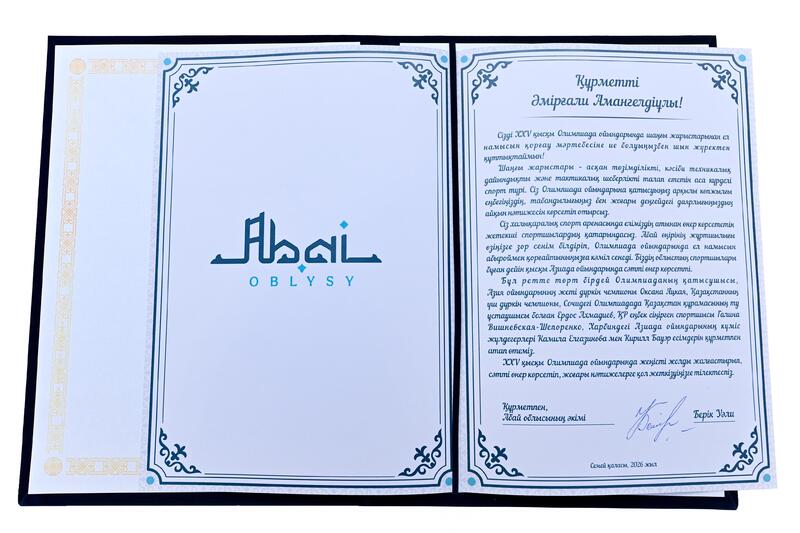 Abai
OBLYSY
Құрметті
Әмірғали Амангелдіұлы!
Сізді XXV қысқы Олимпиада ойындарында шаңғы жарыстарынан ел
намысын қорғау мәртебесіне ие болуыңызбен шын жүректен
құттықтаймын!
Шаңғы жарыстары – асқан төзімділікті, кәсіби техникалық
дайындықты және тактикалық шеберлікті талап ететін аса күрделі
спорт түрі. Сіз Олимпиада ойындарына қатысуыңыз арқылы көпжылғы
еңбегіңіздің, табандылығыңыз бен жоғары деңгейдегі даярлығыңыздың
айқын нәтижесін көрсетіп отырсыз.
Сіз халықаралық спорт аренасында еліміздің атынан өнер көрсететін
жетекші спортшылардың қатарындасыз. Абай өңірінің жұртшылығы
өзіңізге зор сенім білдіріп, Олимпиада ойындарында ел намысын
абыроймен қорғайтыныңызға кәміл сенеді. Біздің облыстың спортшылары
бұған дейін қысқы Азиада ойындарында сәтті өнер көрсетті.
Бұл ретте төрт бірдей Олимпиаданың қатысушысы,
Азия ойындарының жеті дүркін чемпионы Оксана Яцкая, Қазақстанның
үш дүркін чемпионы, Сочидегі Олимпиадада Қазақстан құрамасының ту
ұстаушысы болған Ердос Ахмадиев, ҚР еңбек сіңірген спортшысы Галина
Вишневская-Шепоренко, Харбиндегі Азиада ойындарының күміс
жүлдегерлері Камила Елгазинова мен Кирилл Бауэр есімдерін құрметпен
атап өтеміз.
XXV қысқы Олимпиада ойындарында жеңісті жолды жалғастырып,
сәтті өнер көрсетіп, жоғары нәтижелерге қол жеткізуіңізге тілектеспіз.
Құрметпен,
Абай облысының әкімі
Берік Уәли
Семей қаласы, 2026 жыл